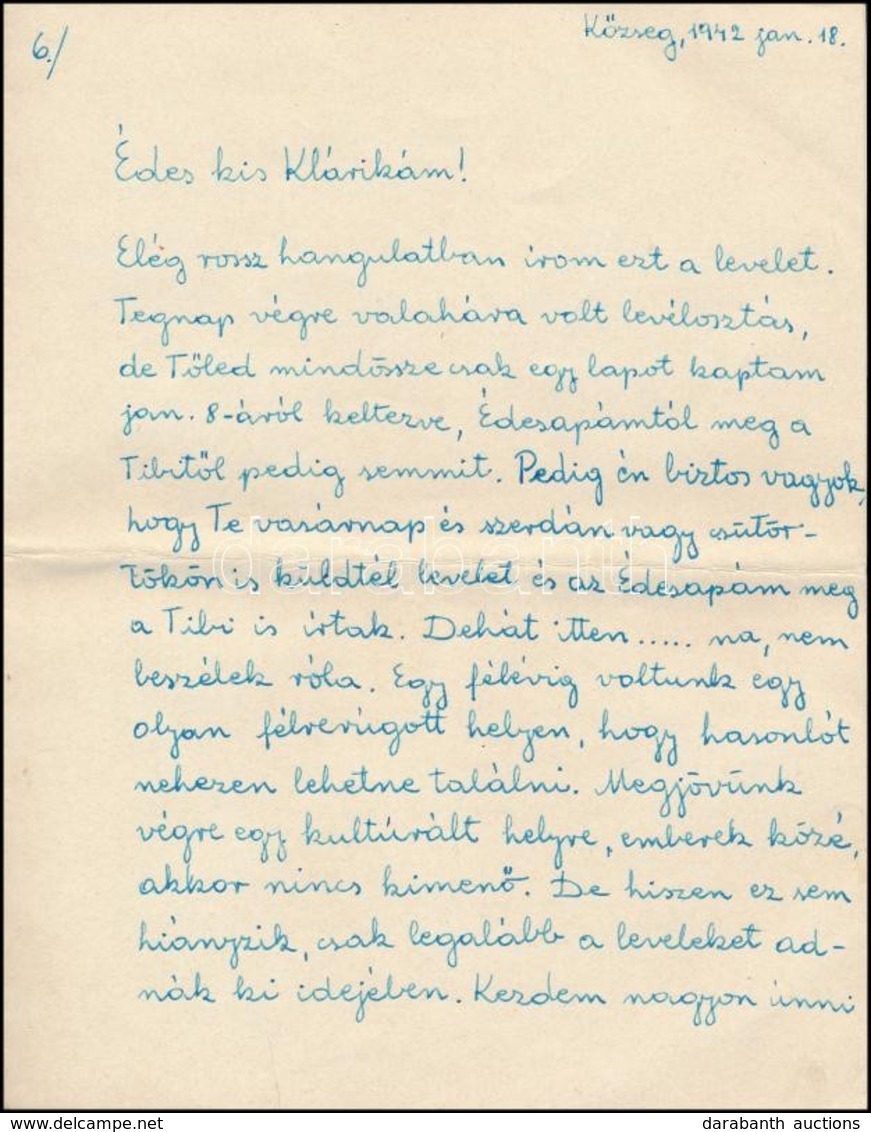 6./
Község, 1942 jan. 18.
Édes kis Klárikám!
Elég rossz hangulatban irom ezt a levelet.
Tegnap végre valahára volt levélosztás,
de Tőled mindössze csak egy lapot kaptam
jan. 8-áról keltezve, Édesapámtól meg a
Tibitől pedig semmit. Pedig én biztos vagyok,
hogy Te vasárnap és szerdán vagy csütör-
tökön is küldtél levelet és az Édesapám meg
a Tibi is írtak. Dehát itten ..... na, nem
beszélek róla. Egy félévig voltunk egy
olyan félrerúgott helyen, hogy hasonlót
nehezen lehetne találni. Megjövünk
végre egy kultúrált helyre, emberek közé,
akkor nincs kimenő. De hiszen ez sem
hiányzik, csak legalább a leveleket ad-
nák ki idejében. Kezdem nagyon unni
darabanth
www.delcampe.net
darabanth auctions